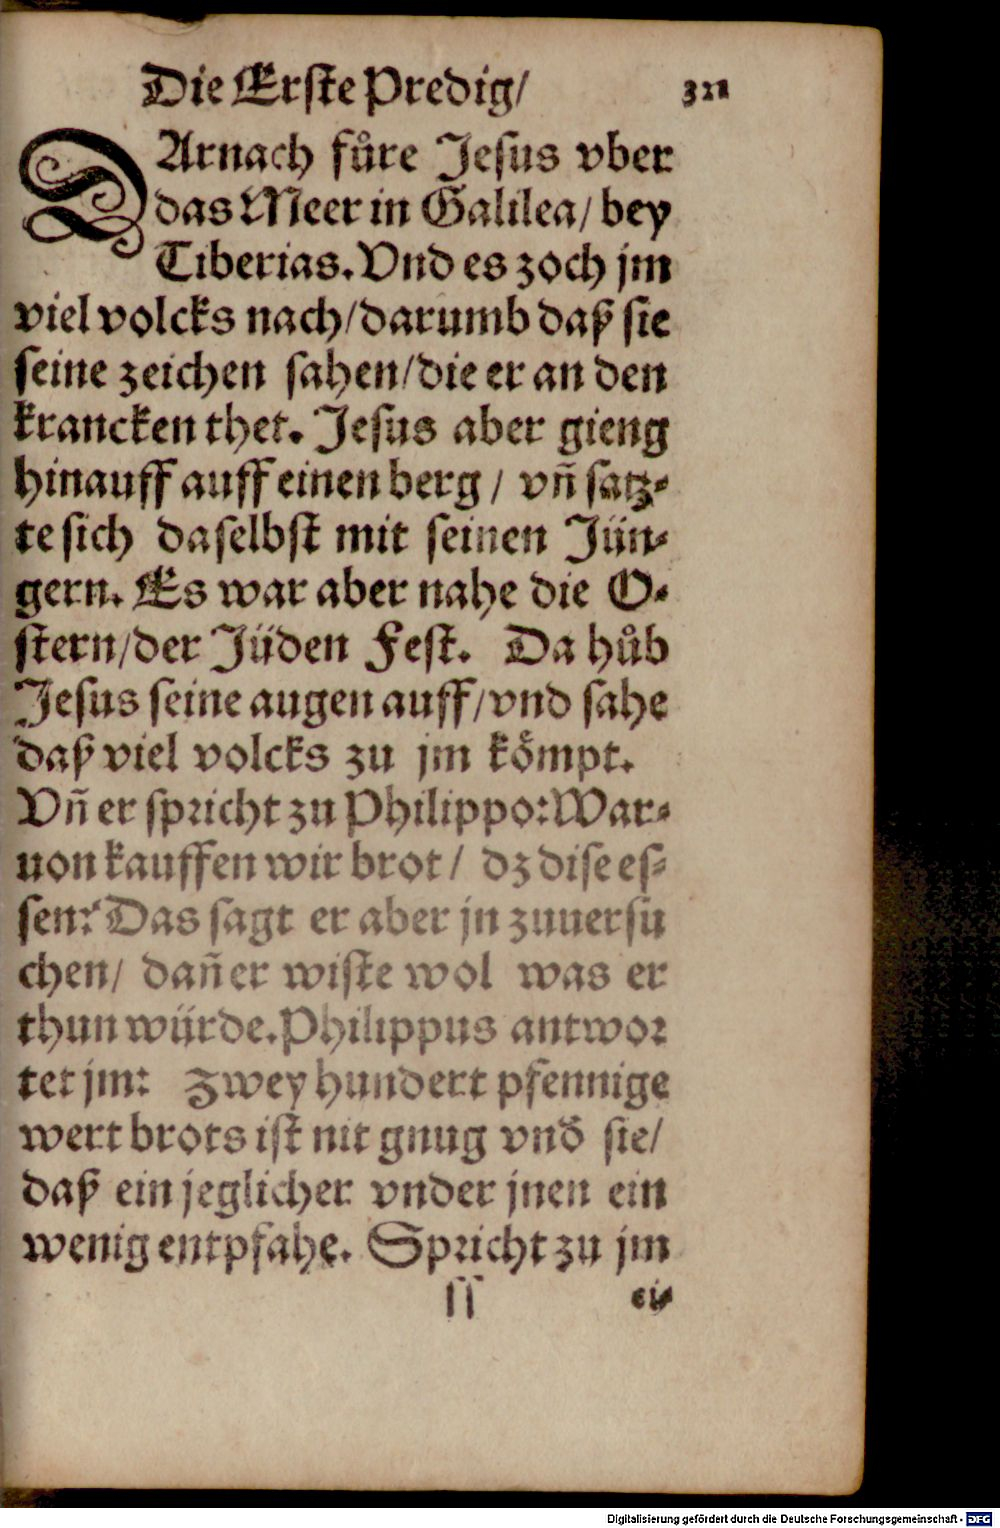 Die Erste Predig/ 321
DArnach fůre Jesus vber
das Meer in Galilea/ bey
Tiberias. Vnd es zoch jm
viel volcks nach/darumb daß sie
seine zeichen sahen/die er an den
krancken thet. Jesus aber gieng
hinauff auff einen berg / vñ satz-
te sich daselbst mit seinen Jün-
gern. Es war aber nahe die O-
stern/der Jüden Fest. Da hůb
Jesus seine augen auff/vnd sahe
daß viel volcks zu jm kömpt.
Vñ er spricht zu Philippo: War-
uon kauffen wir brot / dz dise es-
sen? Das sagt er aber jn zuuersu
chen/ dañ er wiste wol was er
thun würde. Philippus antwor
tet jm: Zwey hundert pfennige
wert brots ist nit gnug vnd̕ sie/
daß ein jeglicher vnder jnen ein
wenig entpfahe. Spricht zu jm
ss ei-
Digitalisierung gefördert durch die Deutsche Forschungsgemeinschaft - DFG